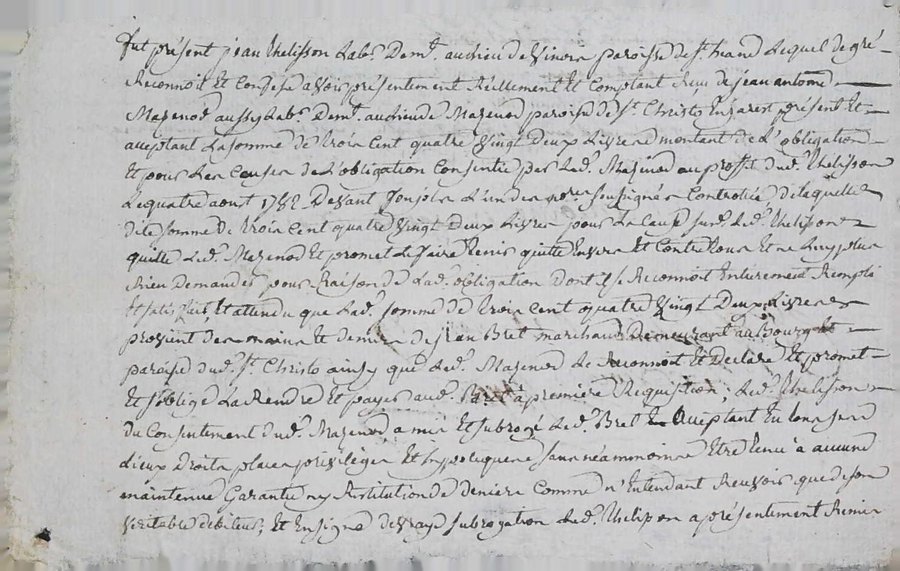 fut présent jean Thelisson Labr. Demt. au Lieu de paroisse de St. heand Lequel de gré
Reconnoit Et Confesse avoir présentement Réellement Et Comptant Recu de jean antoine
Mazenod aussy Labr. Demt. au Lieu de Mazenod paroisse de St. Christo En présent Et
acceptant La somme de trois Cent quatre Vingt Deux Livres montant de L'obligation
Et pour Les Causes de L'obligation Consentie par Led. Mazenod au proffit dud. Thelisson
Le quatre aout 1782 Devant L'un des nores soussignés Controllée De laquelle
dite somme De trois Cent quatre Vingt Deux Livres pour La Cause susd. Led. Thelisson
quitte Led. Mazenod Et promet Le faire tenir quitte Envers Et Contre tous Et ne Luy plus
Rien Demander pour Raison de Lad. obligation Dont il se Reconnoit Entierement Remply
Et satisfait, Et attendu que Lad. somme de trois Cent quatre Vingt Deux Livres
provient des mains Et deniers de jean Bret marchand Demeurant au Bourg Et
paroisse dud. St. Christo ainsy que Led. Mazenod Le Reconnoit Et Declare Et promet
Et s'oblige La Rendre Et payer aud. Bret à premiere Requisition; Led. Thelisson
du Consentement dud. Mazenod a mis Et subrogé Led. Bret Acceptant En son
Lieux Droits places privileges Et hypoteques sans néammoins Etre tenu à aucune
maintenue Garantie ny Restitution de deniers Comme n'Entendant Recevoir que de son
Veritable débiteur; Et En signe de Vraye subrogation Led. Thelisson a présentement Remis